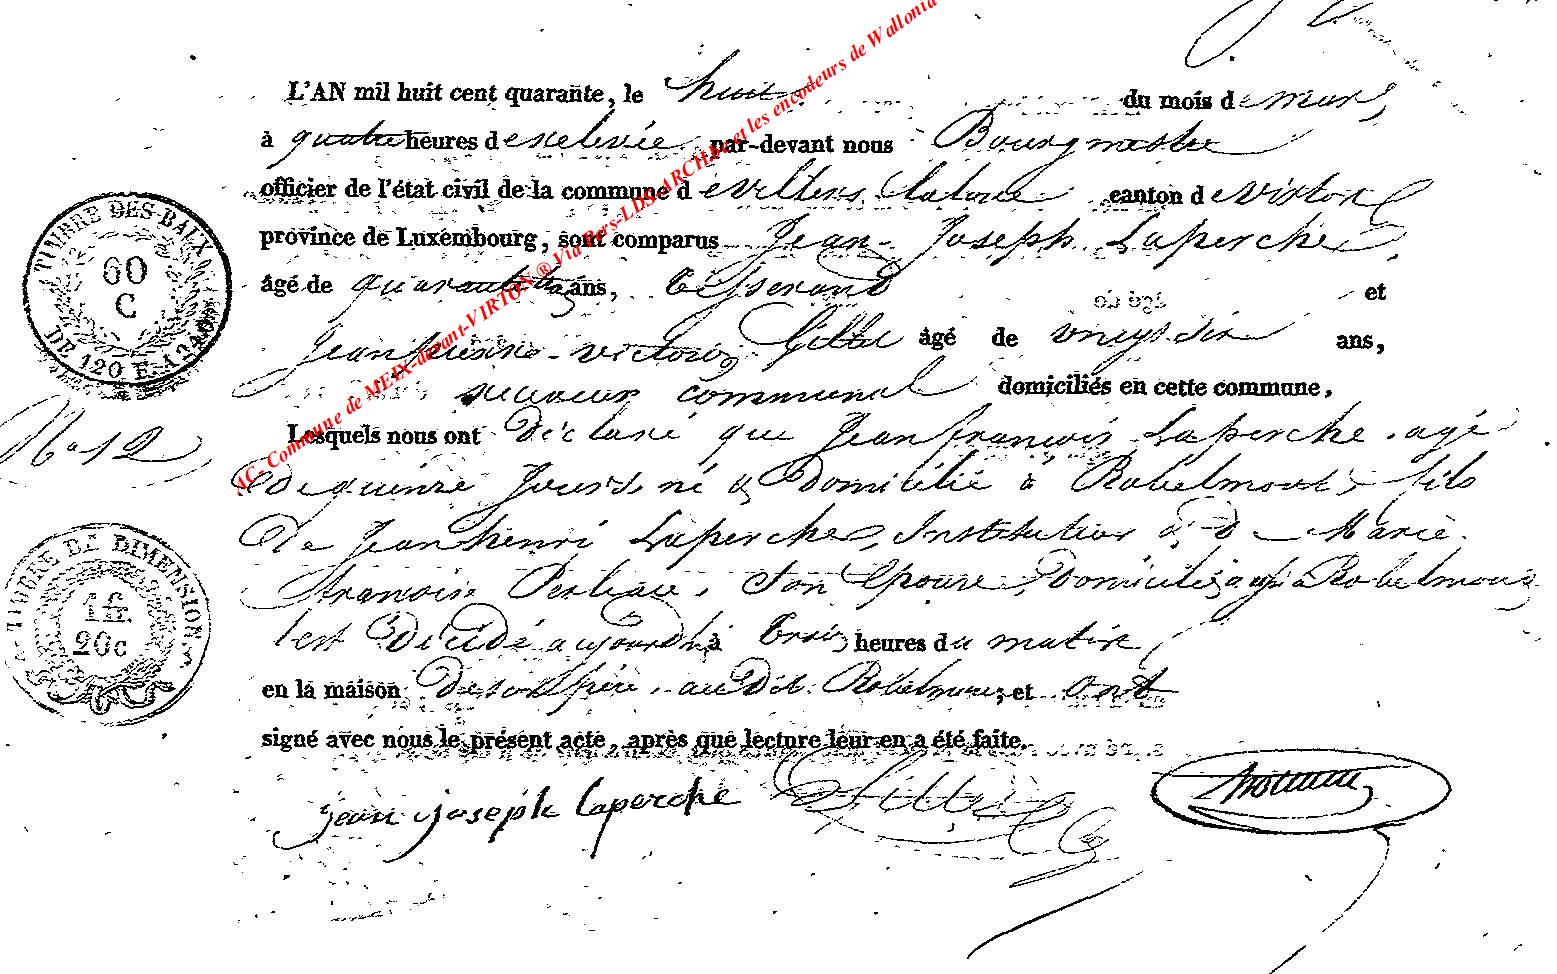 L'AN mil huit cent quarante, le huit du mois de mars,
à quatre heures de relevée par-devant nous Bourgmestre
officier de l'état civil de la commune de Villers la loue canton de virton
province de Luxembourg, sont comparus Jean Joseph Laperche,
âgé de quarante ans, tisserand et
Jean victor âgé de vingt six ans,
receveur communal domiciliés en cette commune,
Lesquels nous ont Déclaré que Jean françois Laperche agé
De quinze Jours né & Domicilié à Robelmont fils
De Jean henri Laperche, Instituteur & D Marie
françoise son Epouse Domiciliés aussi a Robelmont
est Décédé aujourdh à trois heures du matin,
en la maison De son père audit Robelmont, et ont
signé avec nous le présent acte, après que lecture leur en a été faite.
jean joseph laperche
N° 12
TIMBRE DES BAUX
60
C
DE 120 F. A 240
TIMBRE DE DIMENSION
1 fr.
20 c
AC- Commune de MEIX-devant-VIRTON ® Via Pers-LDS-ARCH.be et les encodeurs de Wallonia